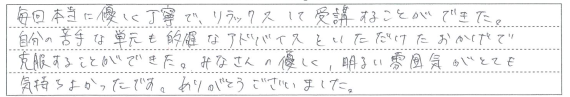 毎回本当に優しく丁寧で、リラックスして受講することができた。
自分の苦手な単元も的確なアドバイスをいただけたおかげで
克服することができた。みなさんの優しく、明るい雰囲気がとても
気持ちよかったです。ありがとうございました。